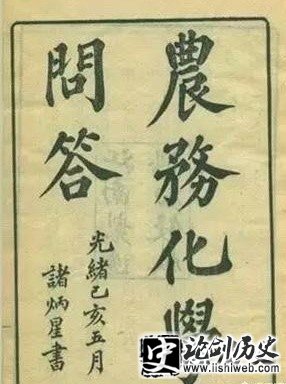 農務化學
問答
光緒己亥五月
諸炳星書
史
论剑历史
www.lishiweb.com